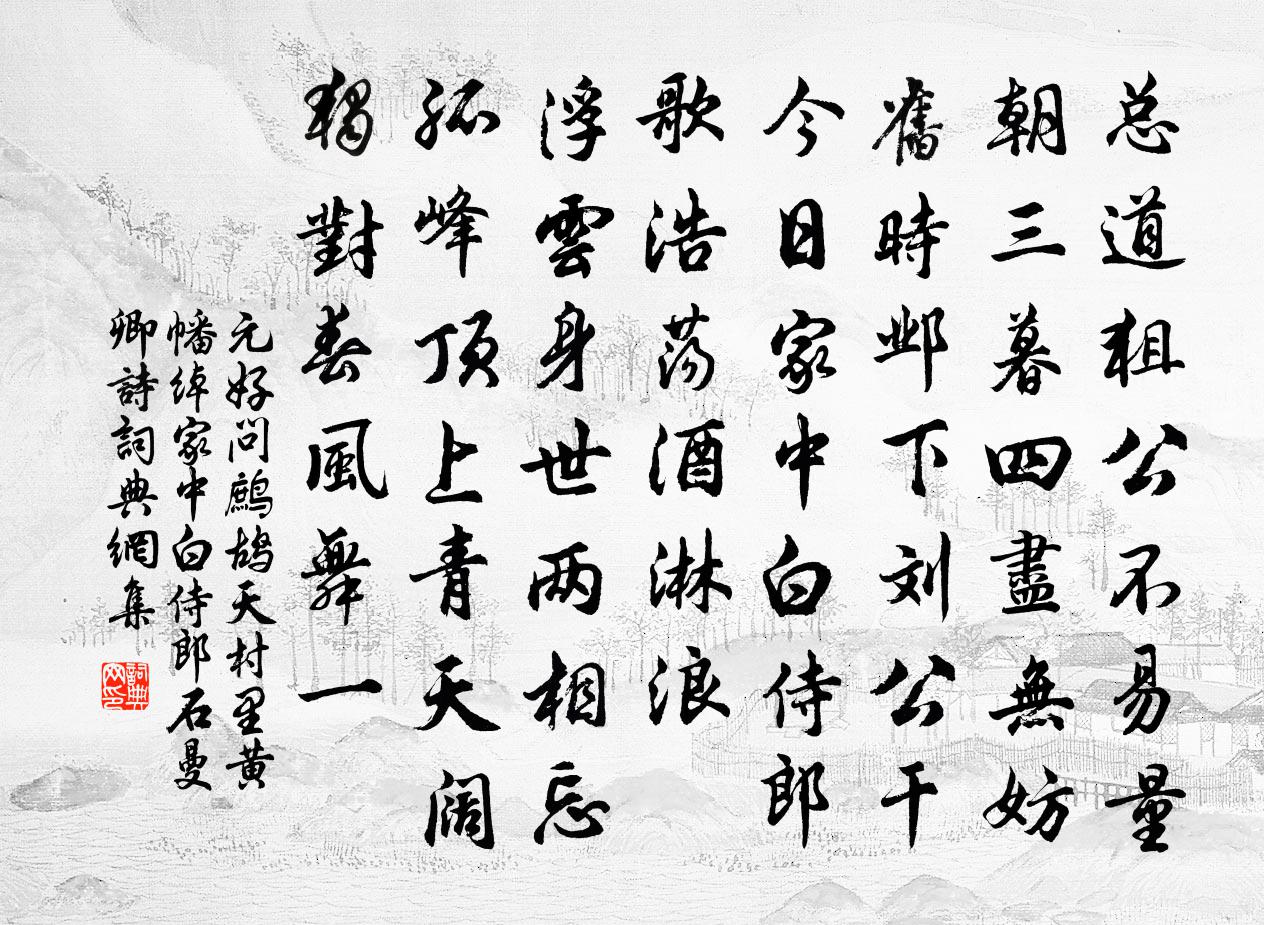 总道狙公不易量
朝三暮四盡無妨
舊時邺下刘公干
今日家中白侍郎
歌浩荡酒淋浪
浮雲身世两相忘
孤峰顶上青天阔
独對春風舞一
元好问鹧鸪天村里黄
幡绰家中白侍郎石曼
卿詩詞典網集
詞典